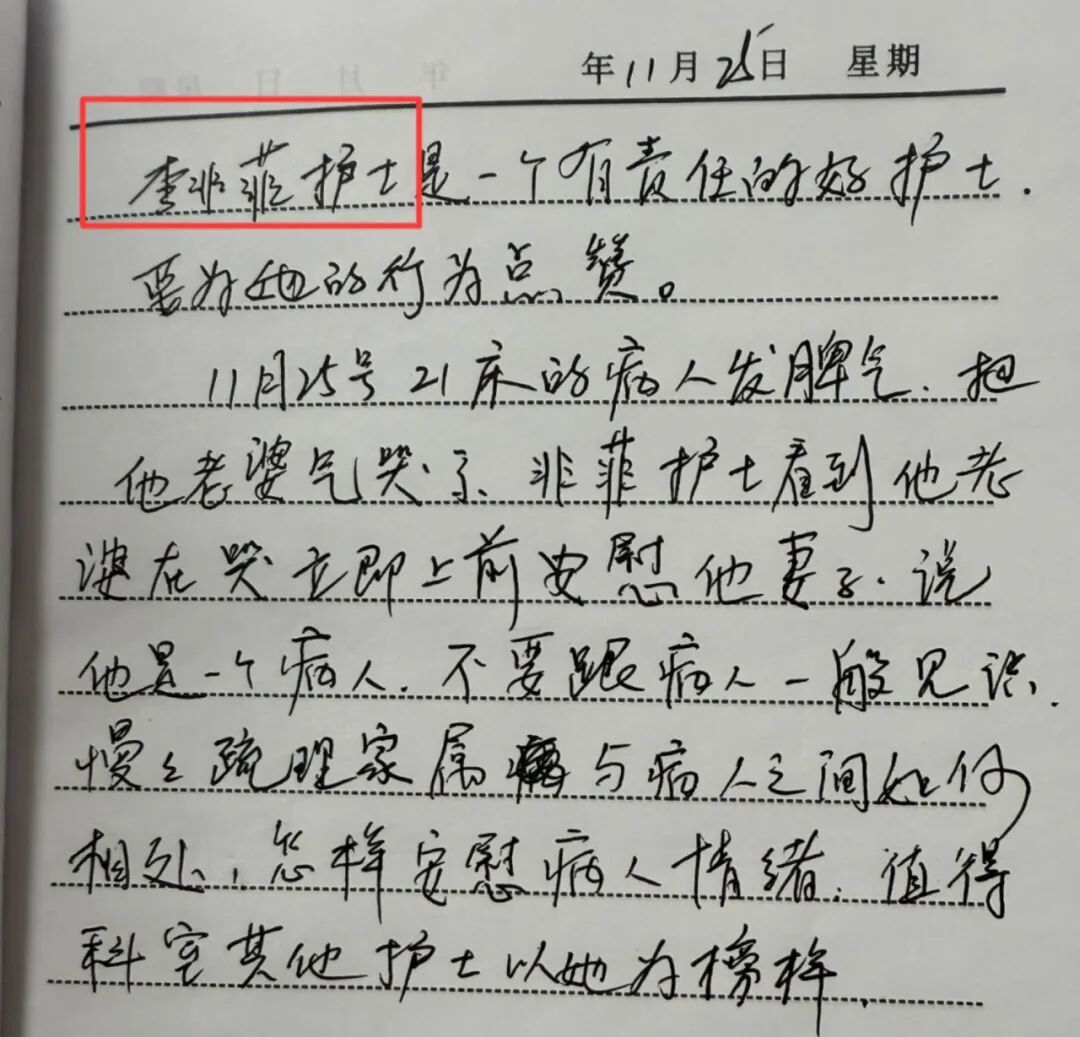 年11月25日 星期
李非菲护士是一个有责任的好护士.
要为她的行为点赞。
11月25号21床的病人发脾气.把
他老婆气哭了、非菲护士看到他老
婆在哭立即上前安慰他妻子.说
他是一个病人.不要跟病人一般见识.
慢々疏理家属与病人之间如何
相处,怎样安慰病人情绪.值得
科室其他护士以她为榜样.